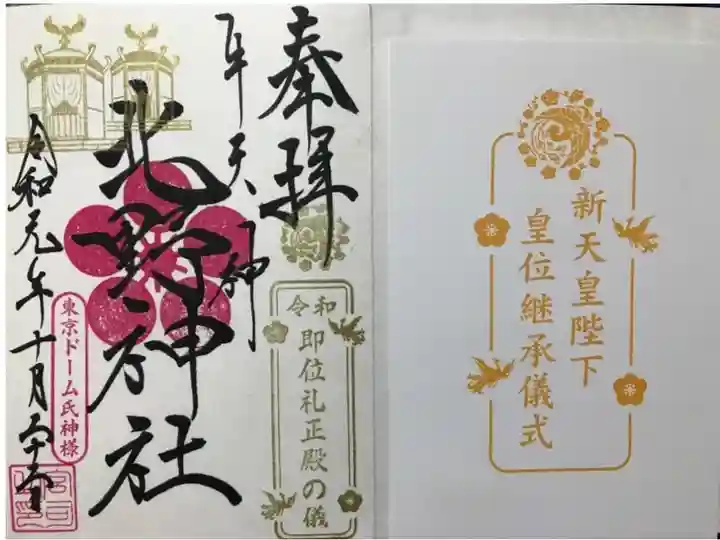 新天皇陛下
皇位継承儀式
奉拝
牛天神
北野神社
令和
即位礼正殿の儀
東京ドーム氏神様
令和元年十月